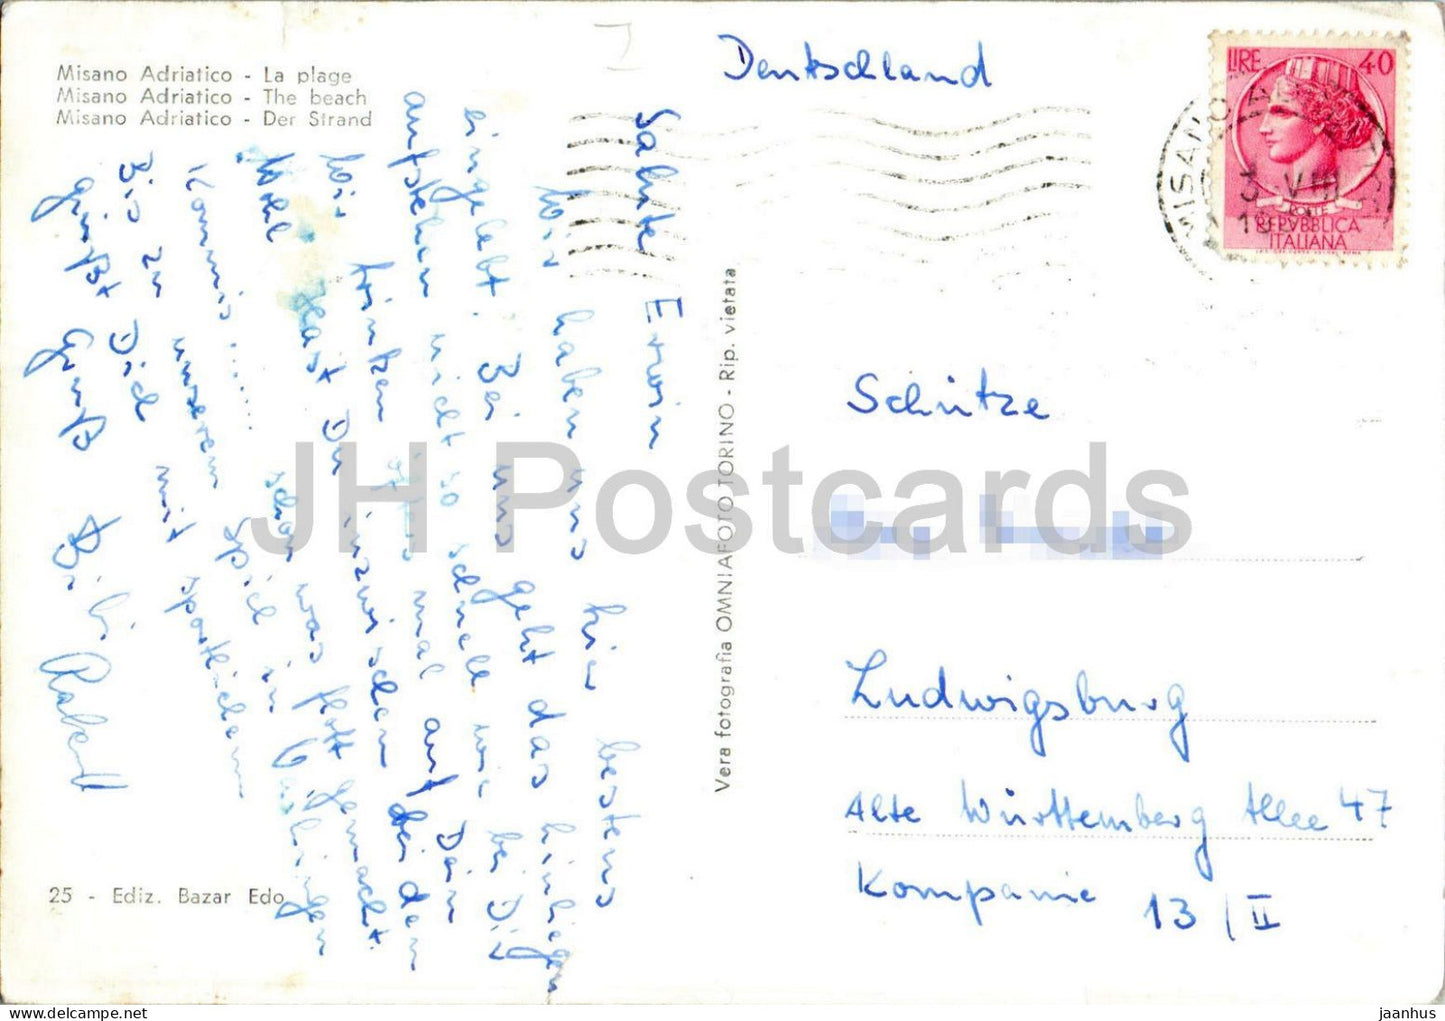 Misano Adriatico - La plage
Misano Adriatico - The beach
Misano Adriatico - Der Strand
Salute Erwin
Wir haben uns hier bestens
eingelebt. Bei uns geht das hinliegen
aufstehen nicht so schnell wie bei Dir
Wir trinken öfters mal auf Dein
Wohl. Hast Du inzwischen bei dem
Kommis....... schon was flott gemacht.
Bis zu unserem Spiel in
grüßt Dich mit sportlichem
Gruß Bibi
25 - Ediz. Bazar Edo
Vera fotografia OMNIAFOTO TORINO - Rip. vietata
Deutschland
LIRE 40
POSTE
REPVBBLICA
ITALIANA
MISANO
3 VIII
Schütze
Ludwigsburg
Alte Württemberg Allee 47
Kompanie 13/II
JH Postcards
www.delcampe.net
jaanhus